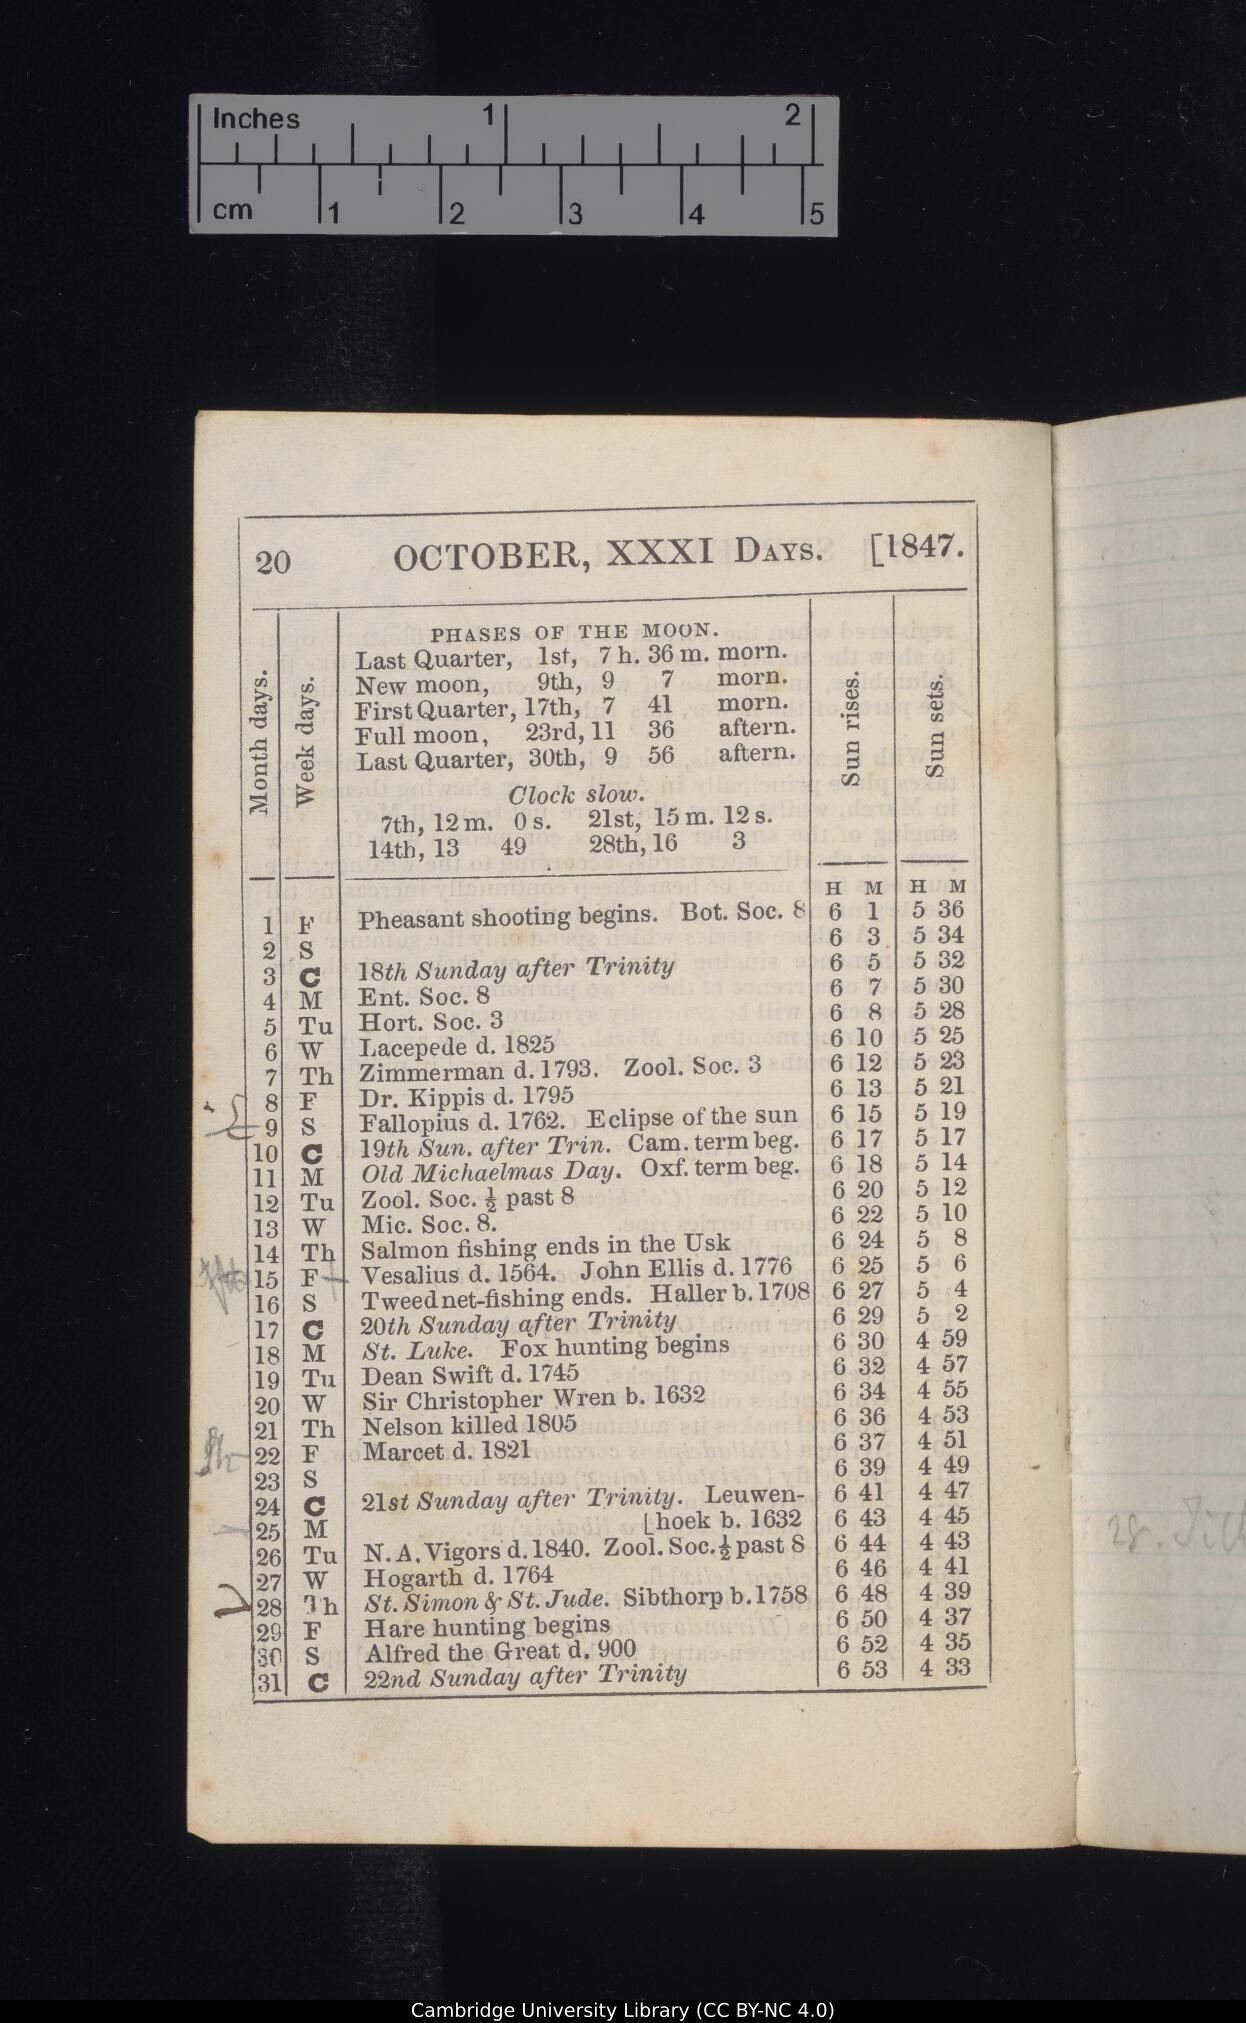 Inches 1 2
cm 1 2 3 4 5
20 OCTOBER, XXXI DAYS. [1847.
Month days.
Week days.
PHASES OF THE MOON.
Last Quarter, 1st, 7 h. 36 m. morn.
New moon, 9th, 9 7 morn.
First Quarter, 17th, 7 41 morn.
Full moon, 23rd, 11 36 aftern.
Last Quarter, 30th, 9 56 aftern.
Clock slow.
7th, 12 m. 0 s. 21st, 15 m. 12 s.
14th, 13 49 28th, 16 3
Sun rises.
Sun sets.
H M H M
1 F Pheasant shooting begins. Bot. Soc. 8 6 1 5 36
2 S 6 3 5 34
3 C 18th Sunday after Trinity 6 5 5 32
4 M Ent. Soc. 8 6 7 5 30
5 Tu Hort. Soc. 3 6 8 5 28
6 W Lacepede d. 1825 6 10 5 25
7 Th Zimmerman d. 1793. Zool. Soc. 3 6 12 5 23
8 F Dr. Kippis d. 1795 6 13 5 21
9 S Fallopius d. 1762. Eclipse of the sun 6 15 5 19
10 C 19th Sun. after Trin. Cam. term beg. 6 17 5 17
11 M Old Michaelmas Day. Oxf. term beg. 6 18 5 14
12 Tu Zool. Soc. ½ past 8 6 20 5 12
13 W Mic. Soc. 8. 6 22 5 10
14 Th Salmon fishing ends in the Usk 6 24 5 8
15 F Vesalius d. 1564. John Ellis d. 1776 6 25 5 6
16 S Tweed net-fishing ends. Haller b. 1708 6 27 5 4
17 C 20th Sunday after Trinity 6 29 5 2
18 M St. Luke. Fox hunting begins 6 30 4 59
19 Tu Dean Swift d. 1745 6 32 4 57
20 W Sir Christopher Wren b. 1632 6 34 4 55
21 Th Nelson killed 1805 6 36 4 53
22 F Marcet d. 1821 6 37 4 51
23 S 6 39 4 49
24 C 21st Sunday after Trinity. Leuwen- 6 41 4 47
25 M [hoek b. 1632 6 43 4 45
26 Tu N. A. Vigors d. 1840. Zool. Soc. ½ past 8 6 44 4 43
27 W Hogarth d. 1764 6 46 4 41
28 Th St. Simon & St. Jude. Sibthorp b. 1758 6 48 4 39
29 F Hare hunting begins 6 50 4 37
30 S Alfred the Great d. 900 6 52 4 35
31 C 22nd Sunday after Trinity 6 53 4 33
28.
Cambridge University Library (CC BY-NC 4.0)